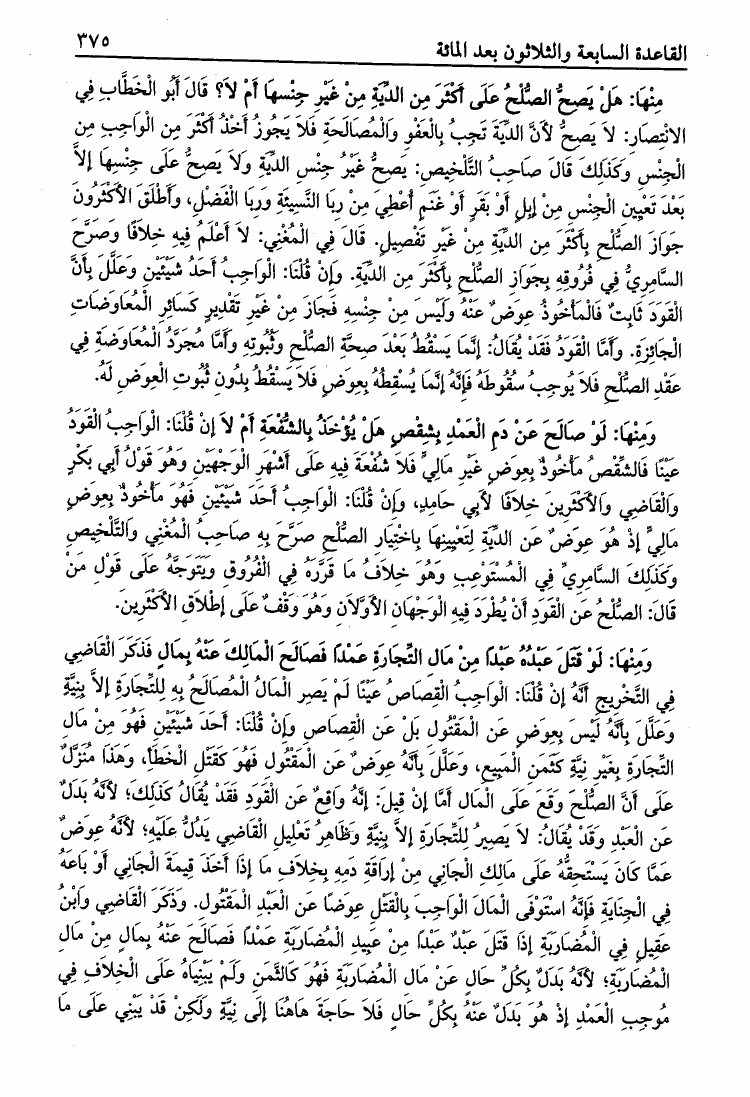 القاعدة السابعة والثلاثون بعد المائة
٣٧٥
مِنْهَا: هَلْ يَصِحُّ الصُّلْحُ عَلَى أَكْثَرَ مِنَ الدِّيَةِ مِنْ غَيْرِ جِنْسِهَا أَمْ لاَ؟ قَالَ أَبُو الْخَطَّابِ فِي
الانْتِصَارِ: لاَ يَصِحُّ لأَنَّ الدِّيَةَ تَجِبُ بِالْعَفْوِ وَالْمُصَالَحَةِ فَلاَ يَجُوزُ أَخْذُ أَكْثَرَ مِنَ الْوَاجِبِ مِنَ
الْجِنْسِ وَكَذَلِكَ قَالَ صَاحِبُ التَّلْخِيصِ: يَصِحُّ غَيْرُ جِنْسِ الدِّيَةِ وَلاَ يَصِحُّ عَلَى جِنْسِهَا إلاَّ
بَعْدَ تَعْيِينِ الْجِنْسِ مِنْ إِبِلٍ أَوْ بَقَرٍ أَوْ غَنَمٍ أُعْطِيَ مِنْ رِبَا النَّسِيئَةِ وَرِبَا الْفَضْلِ، وَأَطْلَقَ الأَكْثَرُونَ
جَوَازَ الصُّلْحِ بِأَكْثَرَ مِنَ الدِّيَةِ مِنْ غَيْرِ تَفْصِيلٍ. قَالَ فِي الْمُغْنِي: لاَ أَعْلَمُ فِيهِ خِلاَفًا وَصَرَّحَ
السَّامِرِيُّ فِي فُرُوقِهِ بِجَوَازِ الصُّلْحِ بِأَكْثَرَ مِنَ الدِّيَةِ. وَإِنْ قُلْنَا: الْوَاجِبُ أَحَدُ شَيْئَيْنِ وَعَلَّلَ بِأَنَّ
الْقَوَدَ ثَابِتٌ فَالْمَأْخُوذُ عِوَضٌ عَنْهُ وَلَيْسَ مِنْ جِنْسِهِ فَجَازَ مِنْ غَيْرِ تَقْدِيرٍ كَسَائِرِ الْمُعَاوَضَاتِ
الْجَائِزَةِ. وَأَمَّا الْقَوَدُ فَقَدْ يُقَالُ: إنَّمَا يَسْقُطُ بَعْدَ صِحَّةِ الصُّلْحِ وَثُبُوتِهِ وَأَمَّا مُجَرَّدُ الْمُعَاوَضَةِ فِي
عَقْدِ الصُّلْحِ فَلاَ يُوجِبُ سُقُوطَهُ فَإِنَّهُ إِنَّمَا يُسْقِطُهُ بِعِوَضٍ فَلاَ يَسْقُطُ بِدُونِ ثُبُوتِ الْعِوَضِ لَهُ.
وَمِنْهَا: لَوْ صَالَحَ عَنْ دَمِ الْعَمْدِ بِشِقْصٍ هَلْ يُؤْخَذُ بِالشُّفْعَةِ أَمْ لاَ إنْ قُلْنَا: الْوَاجِبُ الْقَوَدُ
عَيْنًا فَالشِّقْصُ مَأْخُوذٌ بِعِوَضٍ غَيْرِ مَالِيٍّ فَلاَ شُفْعَةَ فِيهِ عَلَى أَشْهَرِ الْوَجْهَيْنِ وَهُوَ قَوْلُ أَبِي بَكْرٍ
وَالْقَاضِي وَالأَكْثَرِينَ خِلاَفًا لأَبِي حَامِدٍ، وَإِنْ قُلْنَا: الْوَاجِبُ أَحَدُ شَيْئَيْنِ فَهُوَ مَأْخُوذٌ بِعِوَضٍ
مَالِيٍّ إذْ هُوَ عِوَضٌ عَنِ الدِّيَةِ لِتَعْيِينِهَا بِاخْتِيَارِ الصُّلْحِ صَرَّحَ بِهِ صَاحِبُ الْمُغْنِي وَالتَّلْخِيصِ
وَكَذَلِكَ السَّامِرِيُّ فِي الْمُسْتَوْعِبِ وَهُوَ خِلاَفُ مَا قَرَّرَهُ فِي الْفُرُوقِ وَيَتَوَجَّهُ عَلَى قَوْلِ مَنْ
قَالَ: الصُّلْحُ عَنِ الْقَوَدِ أَنْ يُطْرَدَ فِيهِ الْوَجْهَانِ الأَوَّلاَنِ وَهُوَ وَقْفٌ عَلَى إِطْلاَقِ الأَكْثَرِينَ.
وَمِنْهَا: لَوْ قَتَلَ عَبْدُهُ عَبْدًا مِنْ مَالِ التِّجَارَةِ عَمْدًا فَصَالَحَ الْمَالِكَ عَنْهُ بِمَالٍ فَذَكَرَ الْقَاضِي
فِي التَّخْرِيجِ أَنَّهُ إنْ قُلْنَا: الْوَاجِبُ الْقِصَاصُ عَيْنًا لَمْ يَصِرِ الْمَالُ الْمُصَالَحُ بِهِ لِلتِّجَارَةِ إلاَّ بِنِيَّةٍ
وَعَلَّلَ بِأَنَّهُ لَيْسَ بِعِوَضٍ عَنِ الْمَقْتُولِ بَلْ عَنِ الْقِصَاصِ وَإِنْ قُلْنَا: أَحَدَ شَيْئَيْنِ فَهُوَ مِنْ مَالِ
التِّجَارَةِ بِغَيْرِ نِيَّةٍ كَثَمَنِ الْمَبِيعِ، وَعَلَّلَ بِأَنَّهُ عِوَضٌ عَنِ الْمَقْتُولِ فَهُوَ كَقَتْلِ الْخَطَأِ، وَهَذَا مُنَزَّلٌ
عَلَى أَنَّ الصُّلْحَ وَقَعَ عَلَى الْمَالِ أَمَّا إنْ قِيلَ: إنَّهُ وَاقِعٌ عَنِ الْقَوَدِ فَقَدْ يُقَالُ كَذَلِكَ؛ لأَنَّهُ بَدَلٌ
عَنِ الْعَبْدِ وَقَدْ يُقَالُ: لاَ يَصِيرُ لِلتِّجَارَةِ إلاَّ بِنِيَّةٍ وَظَاهِرُ تَعْلِيلِ الْقَاضِي يَدُلُّ عَلَيْهِ؛ لأَنَّهُ عِوَضٌ
عَمَّا كَانَ يَسْتَحِقُّهُ عَلَى مَالِكِ الْجَانِي مِنْ إِرَاقَةِ دَمِهِ بِخِلاَفِ مَا إذَا أَخَذَ قِيمَةَ الْجَانِي أَوْ بَاعَهُ
فِي الْجِنَايَةِ فَإِنَّهُ اسْتَوْفَى الْمَالَ الْوَاجِبَ بِالْقَتْلِ عِوَضًا عَنِ الْعَبْدِ الْمَقْتُولِ. وَذَكَرَ الْقَاضِي وَابْنُ
عَقِيلٍ فِي الْمُضَارَبَةِ إذَا قَتَلَ عَبْدٌ عَبْدًا مِنْ عَبِيدِ الْمُضَارَبَةِ عَمْدًا فَصَالَحَ عَنْهُ بِمَالٍ مِنْ مَالِ
الْمُضَارَبَةِ؛ لأَنَّهُ بَدَلٌ بِكُلِّ حَالٍ عَنْ مَالِ الْمُضَارَبَةِ فَهُوَ كَالثَّمَنِ وَلَمْ يَبْنِيَاهُ عَلَى الْخِلاَفِ فِي
مُوجِبِ الْعَمْدِ إذْ هُوَ بَدَلٌ عَنْهُ بِكُلِّ حَالٍ فَلاَ حَاجَةَ هَاهُنَا إلَى نِيَّةٍ وَلَكِنْ قَدْ يَبْنِي عَلَى مَا